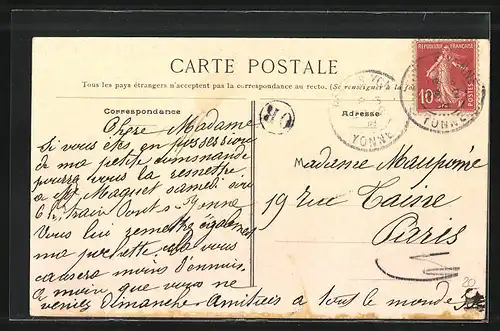 CARTE POSTALE
Tous les pays étrangers n'acceptent pas la correspondance au recto. (Se renseigner à la
Correspondance
Adresse
RÉPUBLIQUE FRANÇAISE
10
POSTES
YONNE
YONNE
Chère Madame
Si vous êtes en possession
de ma petite commande
pourra vous la remettre
à Mr Maquet samedi soir
Pont s. Yonne
Vous lui remettre également
ma pochette cela vous
causera moins d'ennuis
à moins que vous ne
veniez dimanche. Amitiés à tout le monde
Madame Maupomé
19 rue Taine
Paris